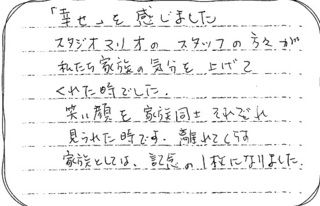 「幸せ」を感じました
スタジオマリオのスタッフの方々が
私たち家族の気分を上げて
くれた時でした。
笑い顔を家族同士それぞれ
見られた時です。離れてくらす
家族としては、記念の1枚になりました。